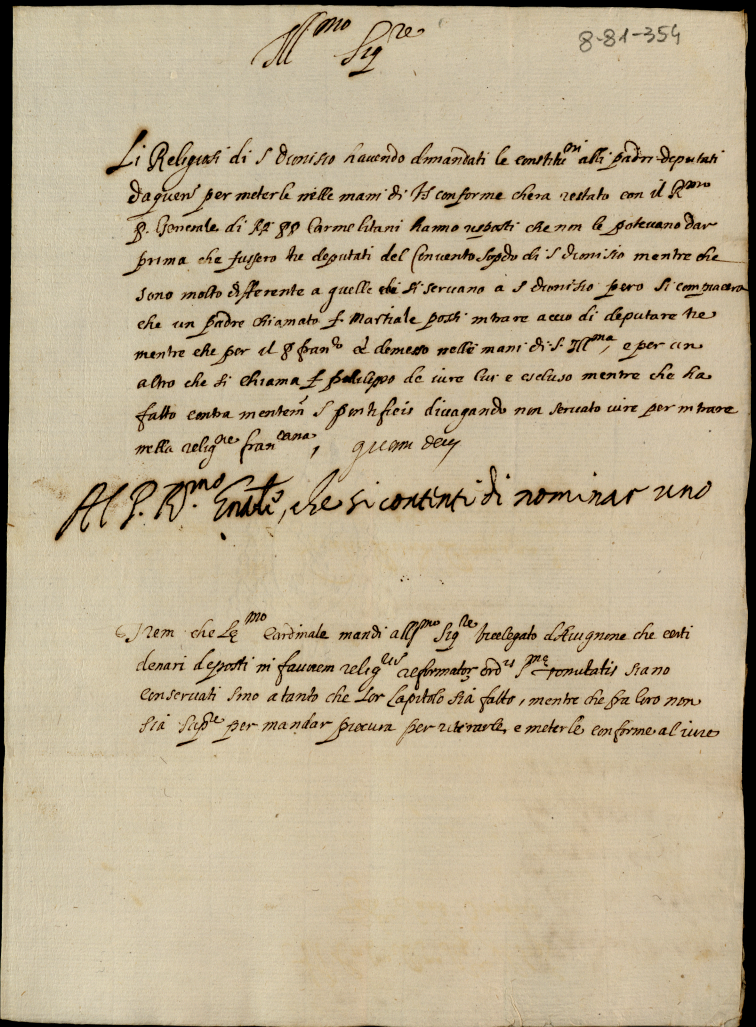 8-81-354
Ill.mo Sig.re
Li Religiosi di S Dionisio havendo dimandati le constitu.ni alli padri deputati
daquens per meterle nelle mani di conforme chera restato con il R.mo
P. Generale di PP Carmelitani hanno risposti che non le potevano dar
prima che fussero tre deputati del Convento Sopdo di S Dionisio mentre che
sono molto differente a quelle che si servano a S dionisio pero si compiacera
che un padre chiamato f. Martiale possi intrare accio di deputare tre
mentre che per il P fran.co demesso nelle mani di S. Ill.ma, e per un
altro che si chiama f. philippo de iure lui e escluso mentre che ha
fatto contra mentem S pontificis divagando non servato iure per intrare
nella relig.ne fran.cana, quam deus
Al P. R.mo Gñale, che si contenti di nominar uno
Item che L'E.mo Cardinale mandi all Ill.mo Sig.re Vicelegato d'Avignone che certi
denari deposti in favorem relig. reformator ord.is S.me siano
conservati sino a tanto che lor Capitolo sia fatto, mentre che fra loro non
sia Sup.re per mandar procura per ritirarle, e meterle conforme al iure